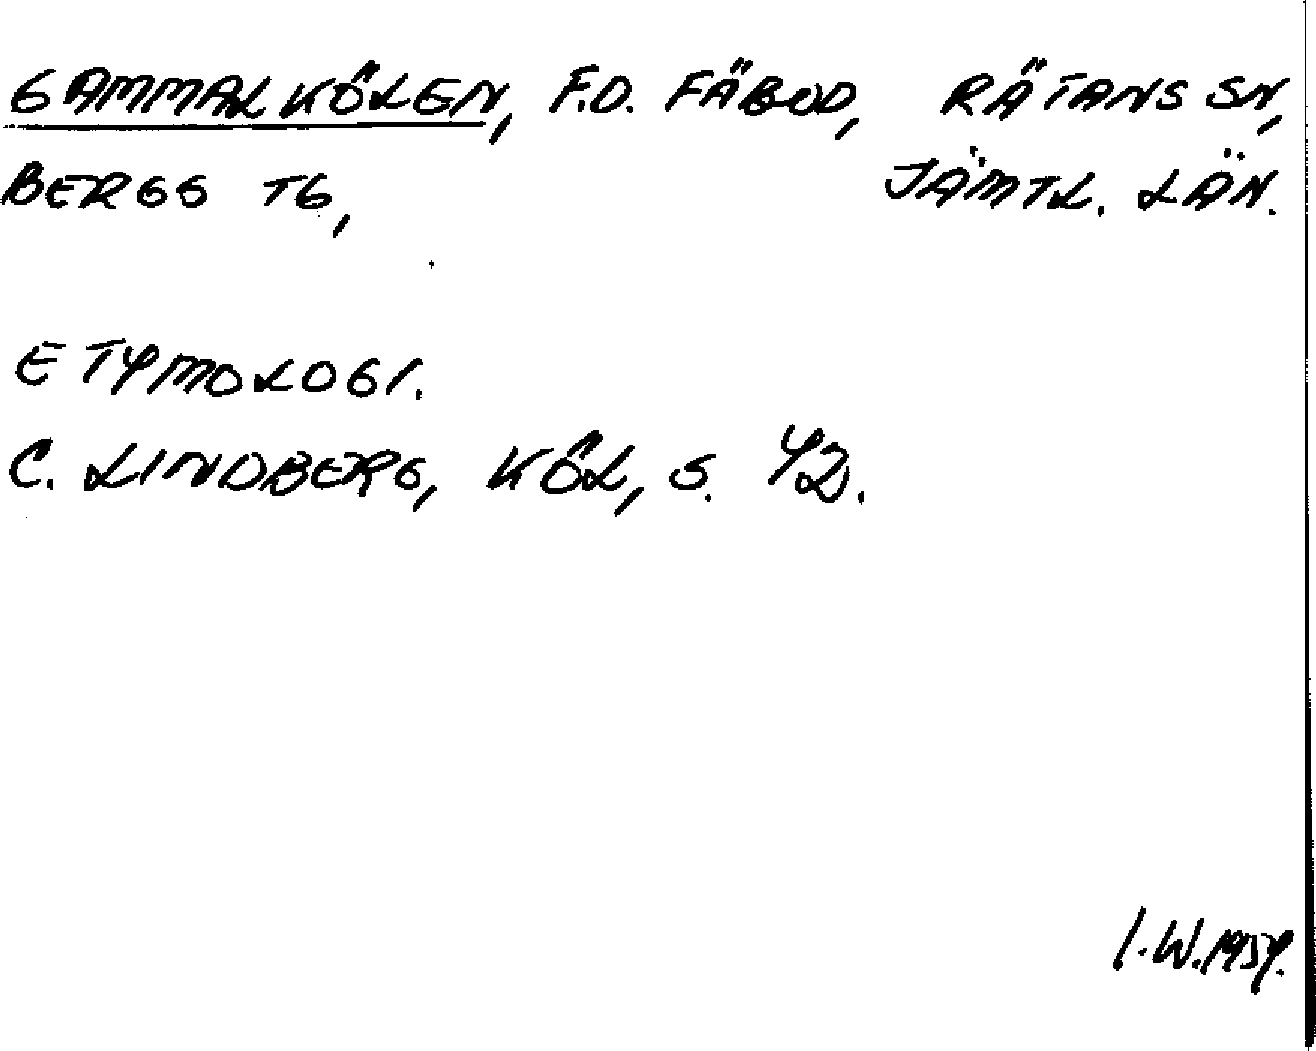 GAMMALKÖLEN, F.D. FÄBOD, RÄTANS SN,
BERGS TG, JÄMTL. LÄN.
ETYMOLOGI.
C. LINDBERG, KÖL, S. 42.
I.W.